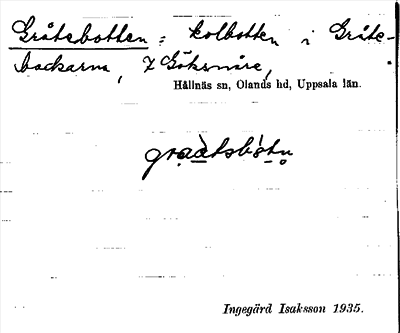 Gråtsbotten = kolbotten i Gråts-
backarna,
Hållnäs sn, Olands hd, Uppsala län.
Ingegärd Isaksson 1935.